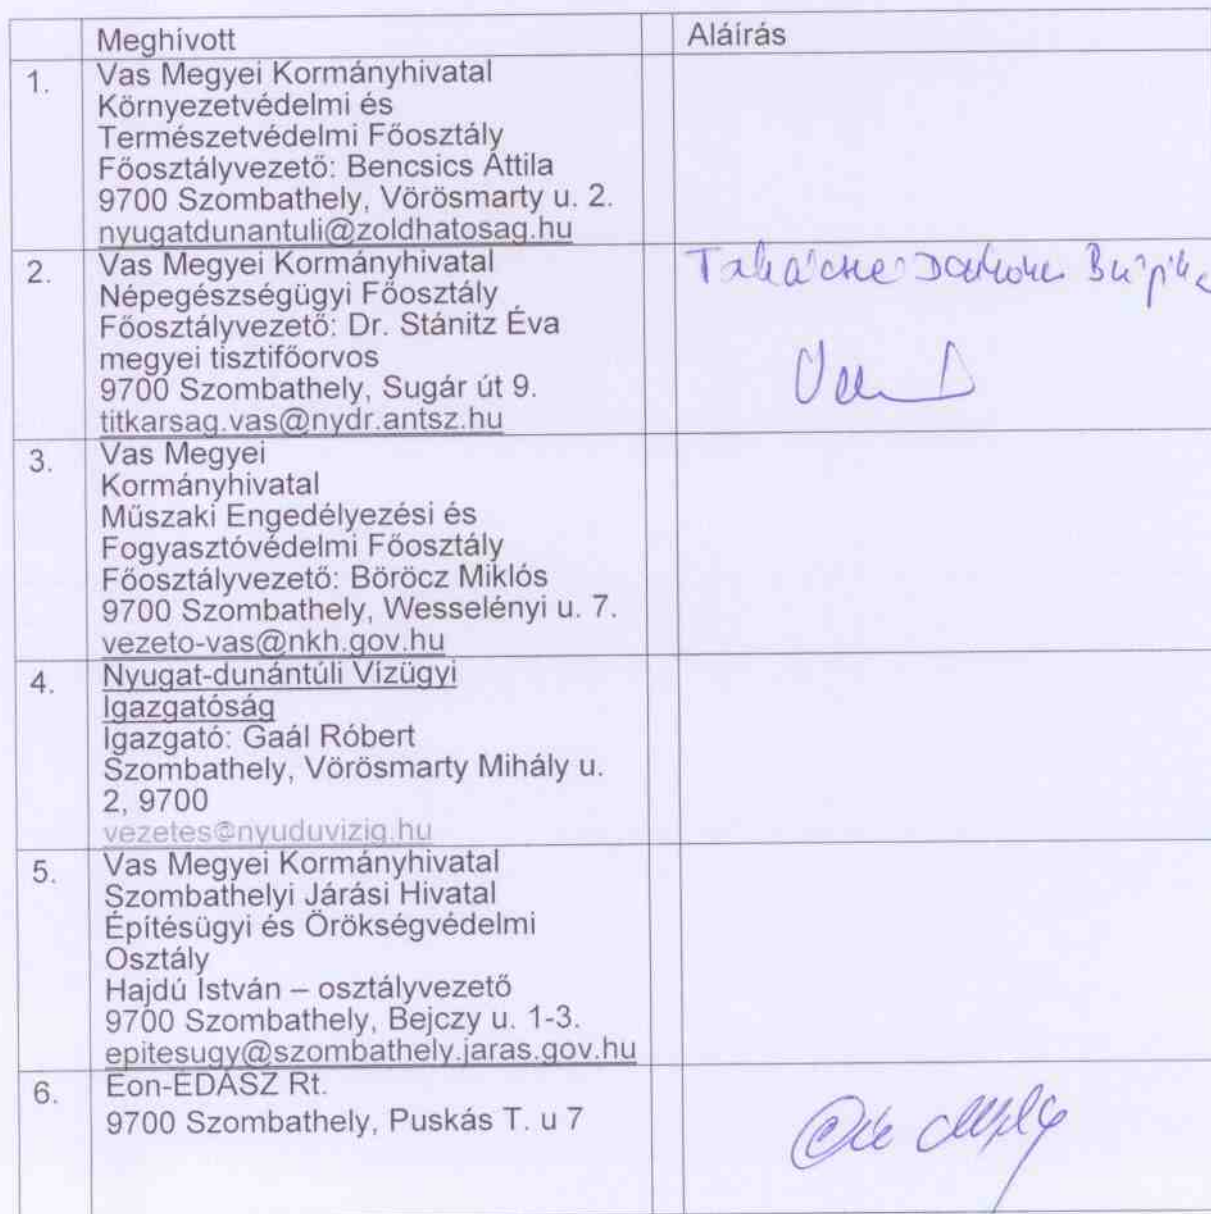 Meghívott Aláírás
1. Vas Megyei Kormányhivatal
Környezetvédelmi és
Természetvédelmi Főosztály
Főosztályvezető: Bencsics Attila
9700 Szombathely, Vörösmarty u. 2.
nyugatdunantuli@zoldhatosag.hu
2. Vas Megyei Kormányhivatal
Népegészségügyi Főosztály
Főosztályvezető: Dr. Stánitz Éva
megyei tisztifőorvos
9700 Szombathely, Sugár út 9.
titkarsag.vas@nydr.antsz.hu
3. Vas Megyei
Kormányhivatal
Műszaki Engedélyezési és
Fogyasztóvédelmi Főosztály
Főosztályvezető: Böröcz Miklós
9700 Szombathely, Wesselényi u. 7.
vezeto-vas@nkh.gov.hu
4. Nyugat-dunántúli Vízügyi
Igazgatóság
Igazgató: Gaál Róbert
Szombathely, Vörösmarty Mihály u.
2, 9700
vezetes@nyuduvizig.hu
5. Vas Megyei Kormányhivatal
Szombathelyi Járási Hivatal
Építésügyi és Örökségvédelmi
Osztály
Hajdú István – osztályvezető
9700 Szombathely, Bejczy u. 1-3.
epitesugy@szombathely.jaras.gov.hu
6. Eon-ÉDÁSZ Rt.
9700 Szombathely, Puskás T. u 7